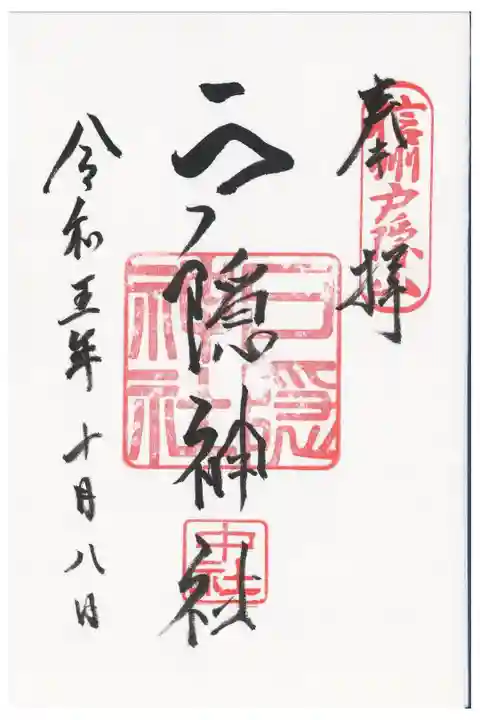 奉拝
信州戸隠山
戸隠神社
戸隠
神社
中社
令和五年十月八日